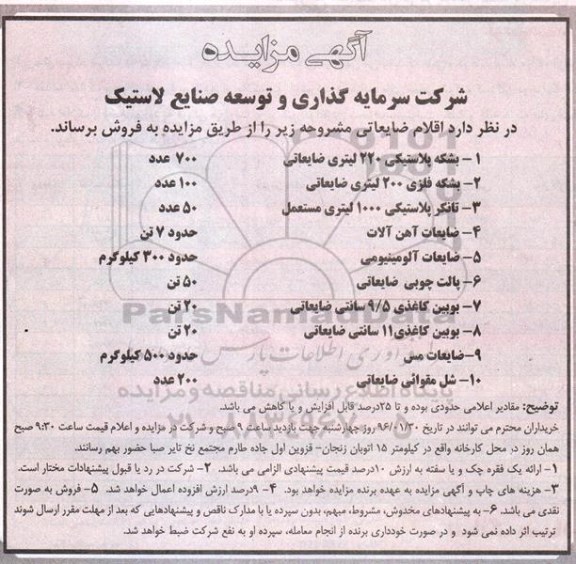 آگهی مزایده
شرکت سرمایه گذاری و توسعه صنایع لاستیک
در نظر دارد اقلام ضایعاتی مشروحه زیر را از طریق مزایده به فروش برساند.
۱- بشکه پلاستیکی ۲۲۰ لیتری ضایعاتی ۷۰۰ عدد
۲- بشکه فلزی ۲۰۰ لیتری ضایعاتی ۱۰۰ عدد
۳- تانکر پلاستیکی ۱۰۰۰ لیتری مستعمل ۵۰ عدد
۴- ضایعات آهن آلات حدود ۷ تن
۵- ضایعات آلومینیومی حدود ۳۰۰ کیلوگرم
۶- پالت چوبی ضایعاتی ۵۰ تن
۷- بوبین کاغذی ۹/۵ سانتی ضایعاتی ۲۰ تن
۸- بوبین کاغذی۱۱ سانتی ضایعاتی ۲۰ تن
۹-ضایعات مس حدود ۵۰۰ کیلوگرم
۱۰- شل مقوائی ضایعاتی ۲۰۰ عدد
توضیح: مقادیر اعلامی حدودی بوده و تا ۲۵درصد قابل افزایش و یا کاهش می باشد.
خریداران محترم می توانند در تاریخ ۹۶/۰۱/۳۰ روز چهارشنبه جهت بازدید ساعت ۹ صبح و شرکت در مزایده و اعلام قیمت ساعت ۹:۳۰ صبح
همان روز در محل کارخانه واقع در کیلومتر ۱۵ اتوبان زنجان- قزوین اول جاده طارم مجتمع نخ تایر صبا حضور بهم رسانند.
۱- ارائه یک فقره چک و یا سفته به ارزش ۱۰درصد قیمت پیشنهادی الزامی می باشد. ۲- شرکت در رد یا قبول پیشنهادات مختار است.
۳- هزینه های چاپ و آگهی مزایده به عهده برنده مزایده خواهد بود. ۴- ۹درصد ارزش افزوده اعمال خواهد شد. ۵- فروش به صورت
نقدی می باشد. ۶- به پیشنهادهای مخدوش، مشروط، مبهم، بدون سپرده یا با مدارک ناقص و پیشنهادهایی که بعد از مهلت مقرر ارسال شوند
ترتیب اثر داده نمی شود و در صورت خودداری برنده از انجام معامله، سپرده او به نفع شرکت ضبط خواهد شد.
ParsNamadData
پایگاه اطلاع رسانی مناقصه و مزایده